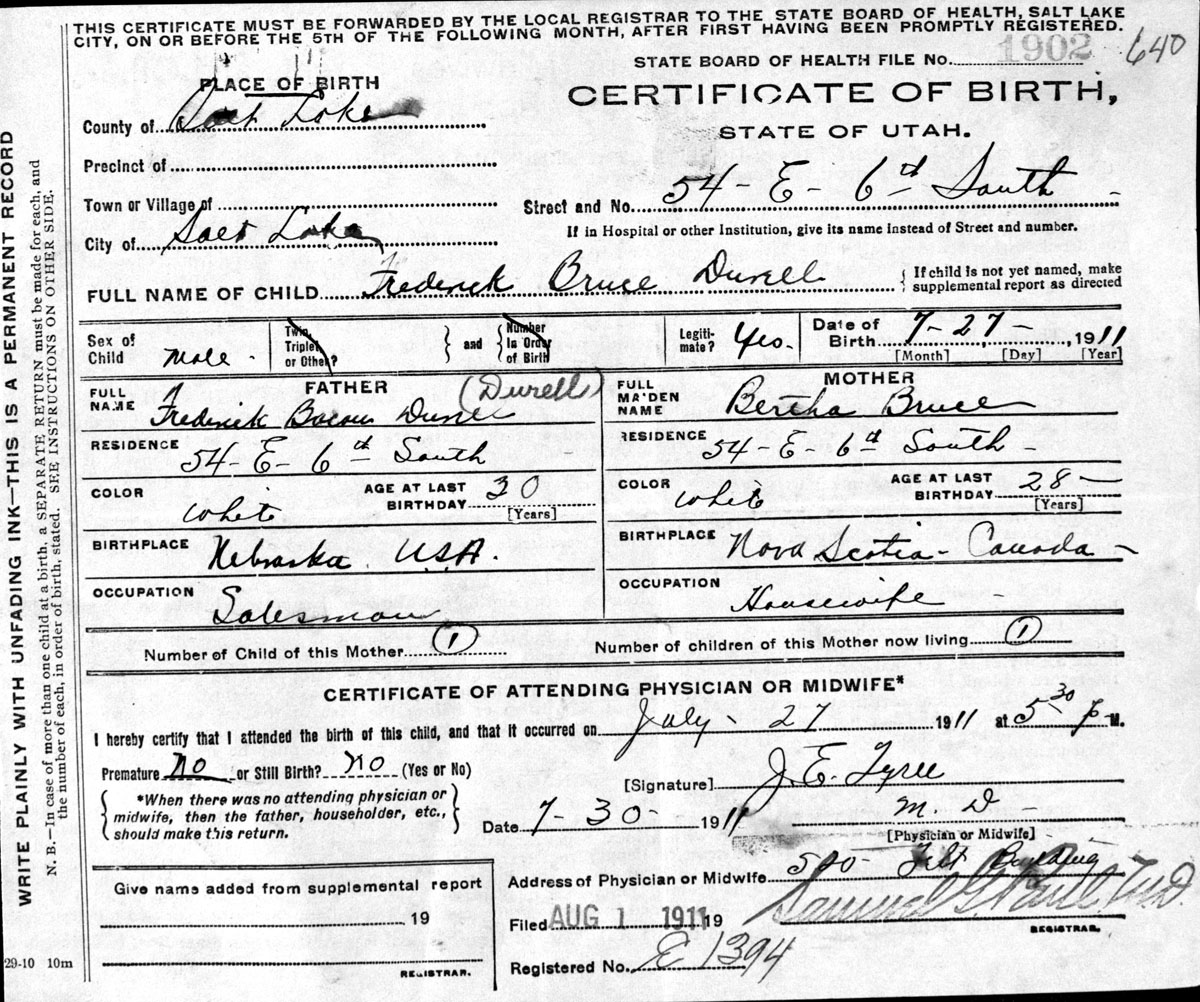 THIS CERTIFICATE MUST BE FORWARDED BY THE LOCAL REGISTRAR TO THE STATE BOARD OF HEALTH, SALT LAKE
CITY, ON OR BEFORE THE 5TH OF THE FOLLOWING MONTH, AFTER FIRST HAVING BEEN PROMPTLY REGISTERED.
640
STATE BOARD OF HEALTH FILE No. 1902
CERTIFICATE OF BIRTH,
STATE OF UTAH.
PLACE OF BIRTH
County of Salt Lake
Precinct of
Town or Village of
City of Salt Lake
Street and No. 54 - E - 6th South -
If in Hospital or other Institution, give its name instead of Street and number.
FULL NAME OF CHILD Frederick Bruce Durell
{ If child is not yet named, make
supplemental report as directed
Sex of Child Male -
Twin, Triplet or Other? } and { Number In Order of Birth
Legiti-mate? Yes.
Date of Birth 7 - 27 - , 1911
[Month] [Day] [Year]
FATHER
FULL NAME Frederick Bacon Durell (Durell)
RESIDENCE 54 - E - 6th South
COLOR White
AGE AT LAST BIRTHDAY 30
[Years]
BIRTHPLACE Nebraska. U.S.A.
OCCUPATION Salesman
MOTHER
FULL MAIDEN NAME Bertha Bruce
RESIDENCE 54 - E - 6th South -
COLOR White
AGE AT LAST BIRTHDAY 28 -
[Years]
BIRTHPLACE Nova Scotia - Canada -
OCCUPATION Housewife -
Number of Child of this Mother 1
Number of children of this Mother now living 1
CERTIFICATE OF ATTENDING PHYSICIAN OR MIDWIFE*
I hereby certify that I attended the birth of this child, and that it occurred on July - 27 1911 at 5-30 P M.
Premature No or Still Birth? No (Yes or No)
{ *When there was no attending physician or
midwife, then the father, householder, etc.,
should make this return. }
[Signature] J. E. Tyree
M. D -
[Physician or Midwife]
Date 7 - 30 - 1911
Address of Physician or Midwife 500 - Felt Building
Give name added from supplemental report
19
REGISTRAR.
Filed AUG 1 1911 19
Samuel G. Paul, M.D.
REGISTRAR.
Registered No. E 1394
29-10 10m
WRITE PLAINLY WITH UNFADING INK—THIS IS A PERMANENT RECORD
N. B.—In case of more than one child at a birth, a SEPARATE RETURN must be made for each, and
the number of each, in order of birth, stated. SEE INSTRUCTIONS ON OTHER SIDE.